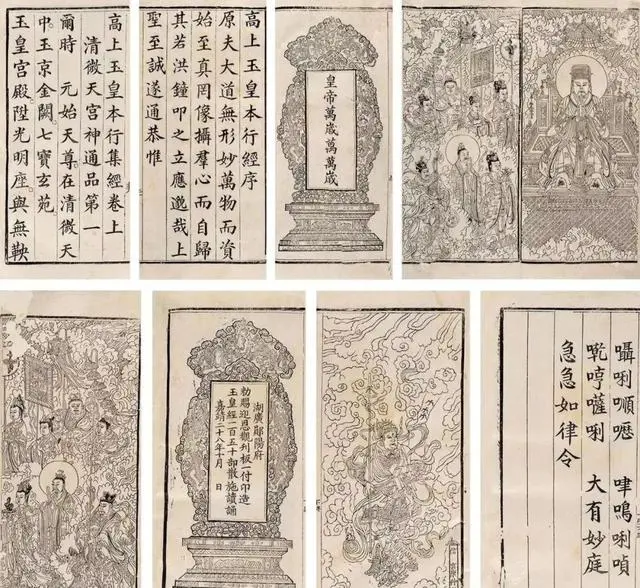 高上玉皇本行集經卷上
清微天宮神通品第一
爾時 元始天尊在清微天
中玉京金闕七寶玄苑
玉皇宮殿陞光明座與無鞅
高上玉皇本行經序
原夫大道無形妙萬物而資
始至真罔像攝羣心而自歸
其若洪鐘叩之立應邈哉上
聖至誠遂通恭惟
皇帝萬歲萬萬歲
湖廣鄖陽府
勅賜迎恩觀刊板一付印造
玉皇經一百五十部散施讀誦
嘉靖二十八年十月 日
囁唎 嚦 嗚唎
哼 唎 大有妙庭
急急如律令